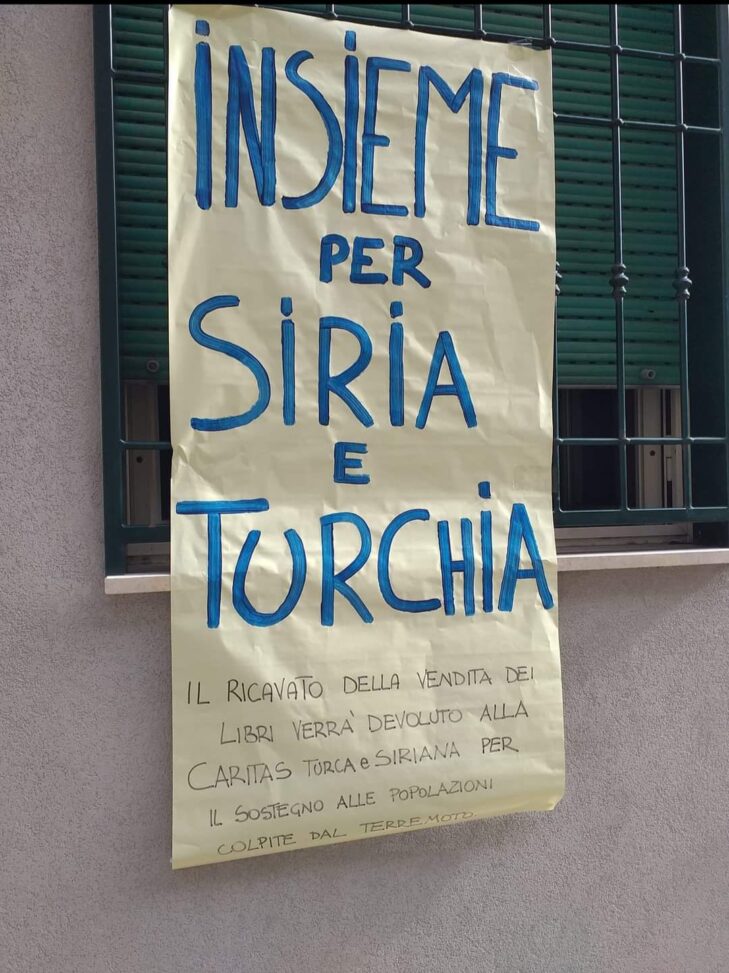 INSIEME
PER
SIRIA
E
TURCHIA
IL RICAVATO DELLA VENDITA DEI
LIBRI VERRA' DEVOLUTO ALLA
CARITAS TURCA e SIRIANA PER
IL SOSTEGNO ALLE POPOLAZIONI
COLPITE DAL TERREMOTO.